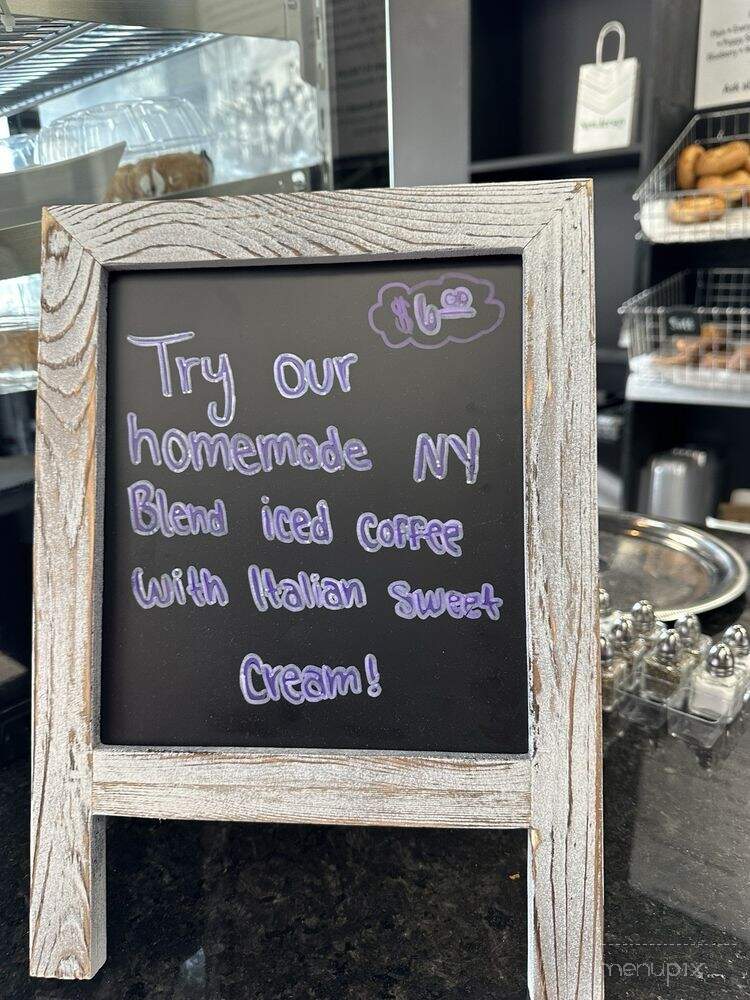 $6.00
Try our
homemade NY
Blend iced coffee
with Italian Sweet
Cream!
menupix